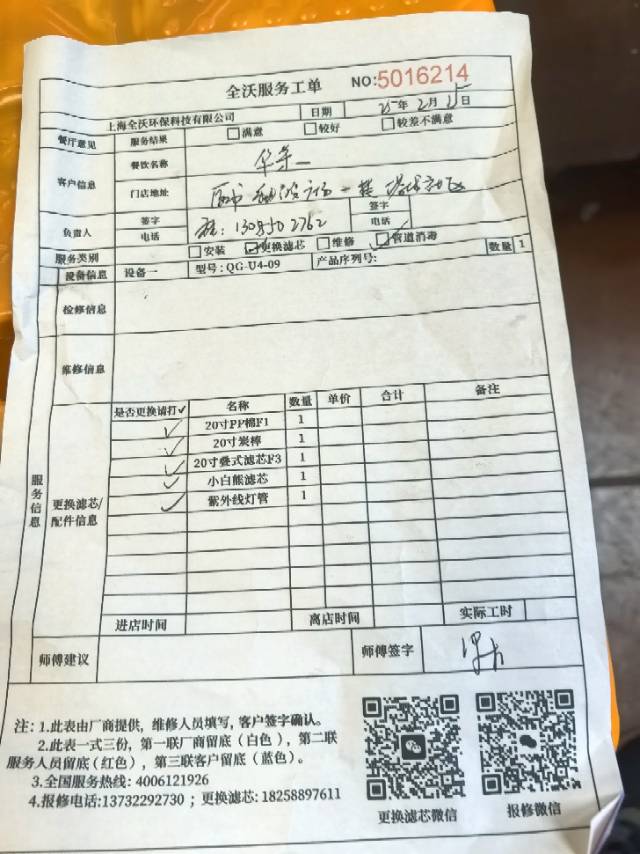 全沃服务工单 NO:5016214
上海全沃环保科技有限公司 日期 25年2月25日
餐厅意见 服务结果 满意 较好 较差不满意
客户信息 餐饮名称
门店地址
负责人 签字 签字
电话 电话
服务类别 安装 更换滤芯 维修 管道消毒
设备信息 设备一 型号: QG-U4-09 产品序列号: 数量 1
检修信息
维修信息
服务信息
更换滤芯/配件信息
是否更换请打✓ 名称 数量 单价 合计 备注
✓ 20寸PP棉F1 1
✓ 20寸炭棒 1
✓ 20寸叠式滤芯F3 1
✓ 小白熊滤芯 1
✓ 紫外线灯管 1
进店时间 离店时间 实际工时
师傅建议 师傅签字
注: 1.此表由厂商提供，维修人员填写，客户签字确认。
2.此表一式三份，第一联厂商留底（白色），第二联
服务人员留底(红色)，第三联客户留底（蓝色）。
3.全国服务热线: 4006121926
4.报修电话:13732292730 ; 更换滤芯: 18258897611
更换滤芯微信 报修微信